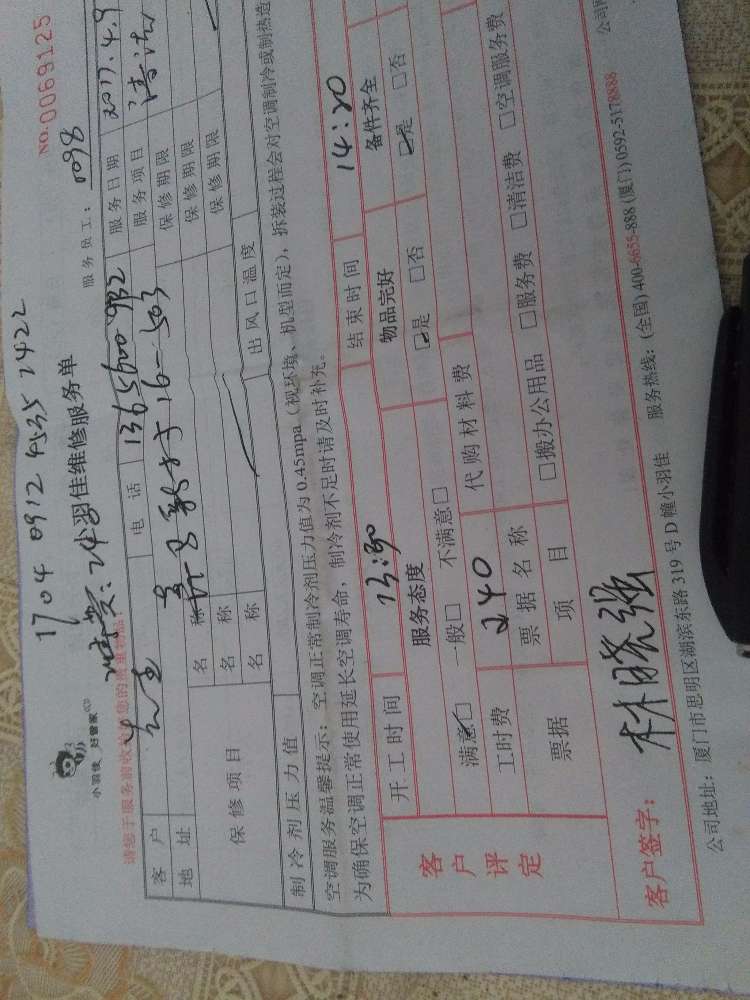 1704 0912 4535 2422
NO.0069125
小羽佳 好管家
小羽佳维修服务单
服务员工: 0098
请您于服务前收
您的贵重物品
客户 先生 电话 服务日期 2017.4.9
地址 16-503 服务项目 清洗
保修项目 名称 保修期限
名称 保修期限
名称 保修期限
制冷剂压力值 出风口温度
空调服务温馨提示:空调正常制冷剂压力值为0.45mpa(视环境、机型而定),拆装过程会对空调制冷或制热造
为确保空调正常使用延长空调寿命,制冷剂不足时请及时补充。
客户评定
开工时间 13:30 结束时间 14:20
服务态度 物品完好 备件齐全
满意□ 一般□ 不满意□ □是 □否 □是 □否
工时费 240 代购材料费
票据 票据名称
项目 □搬办公用品 □服务费 □清洁费 □空调服务费
客户签字: 林晓强
公司地址:厦门市思明区湖滨东路319号D幢小羽佳 服务热线:(全国)400-6655-888(厦门)0592-5178888 公司网